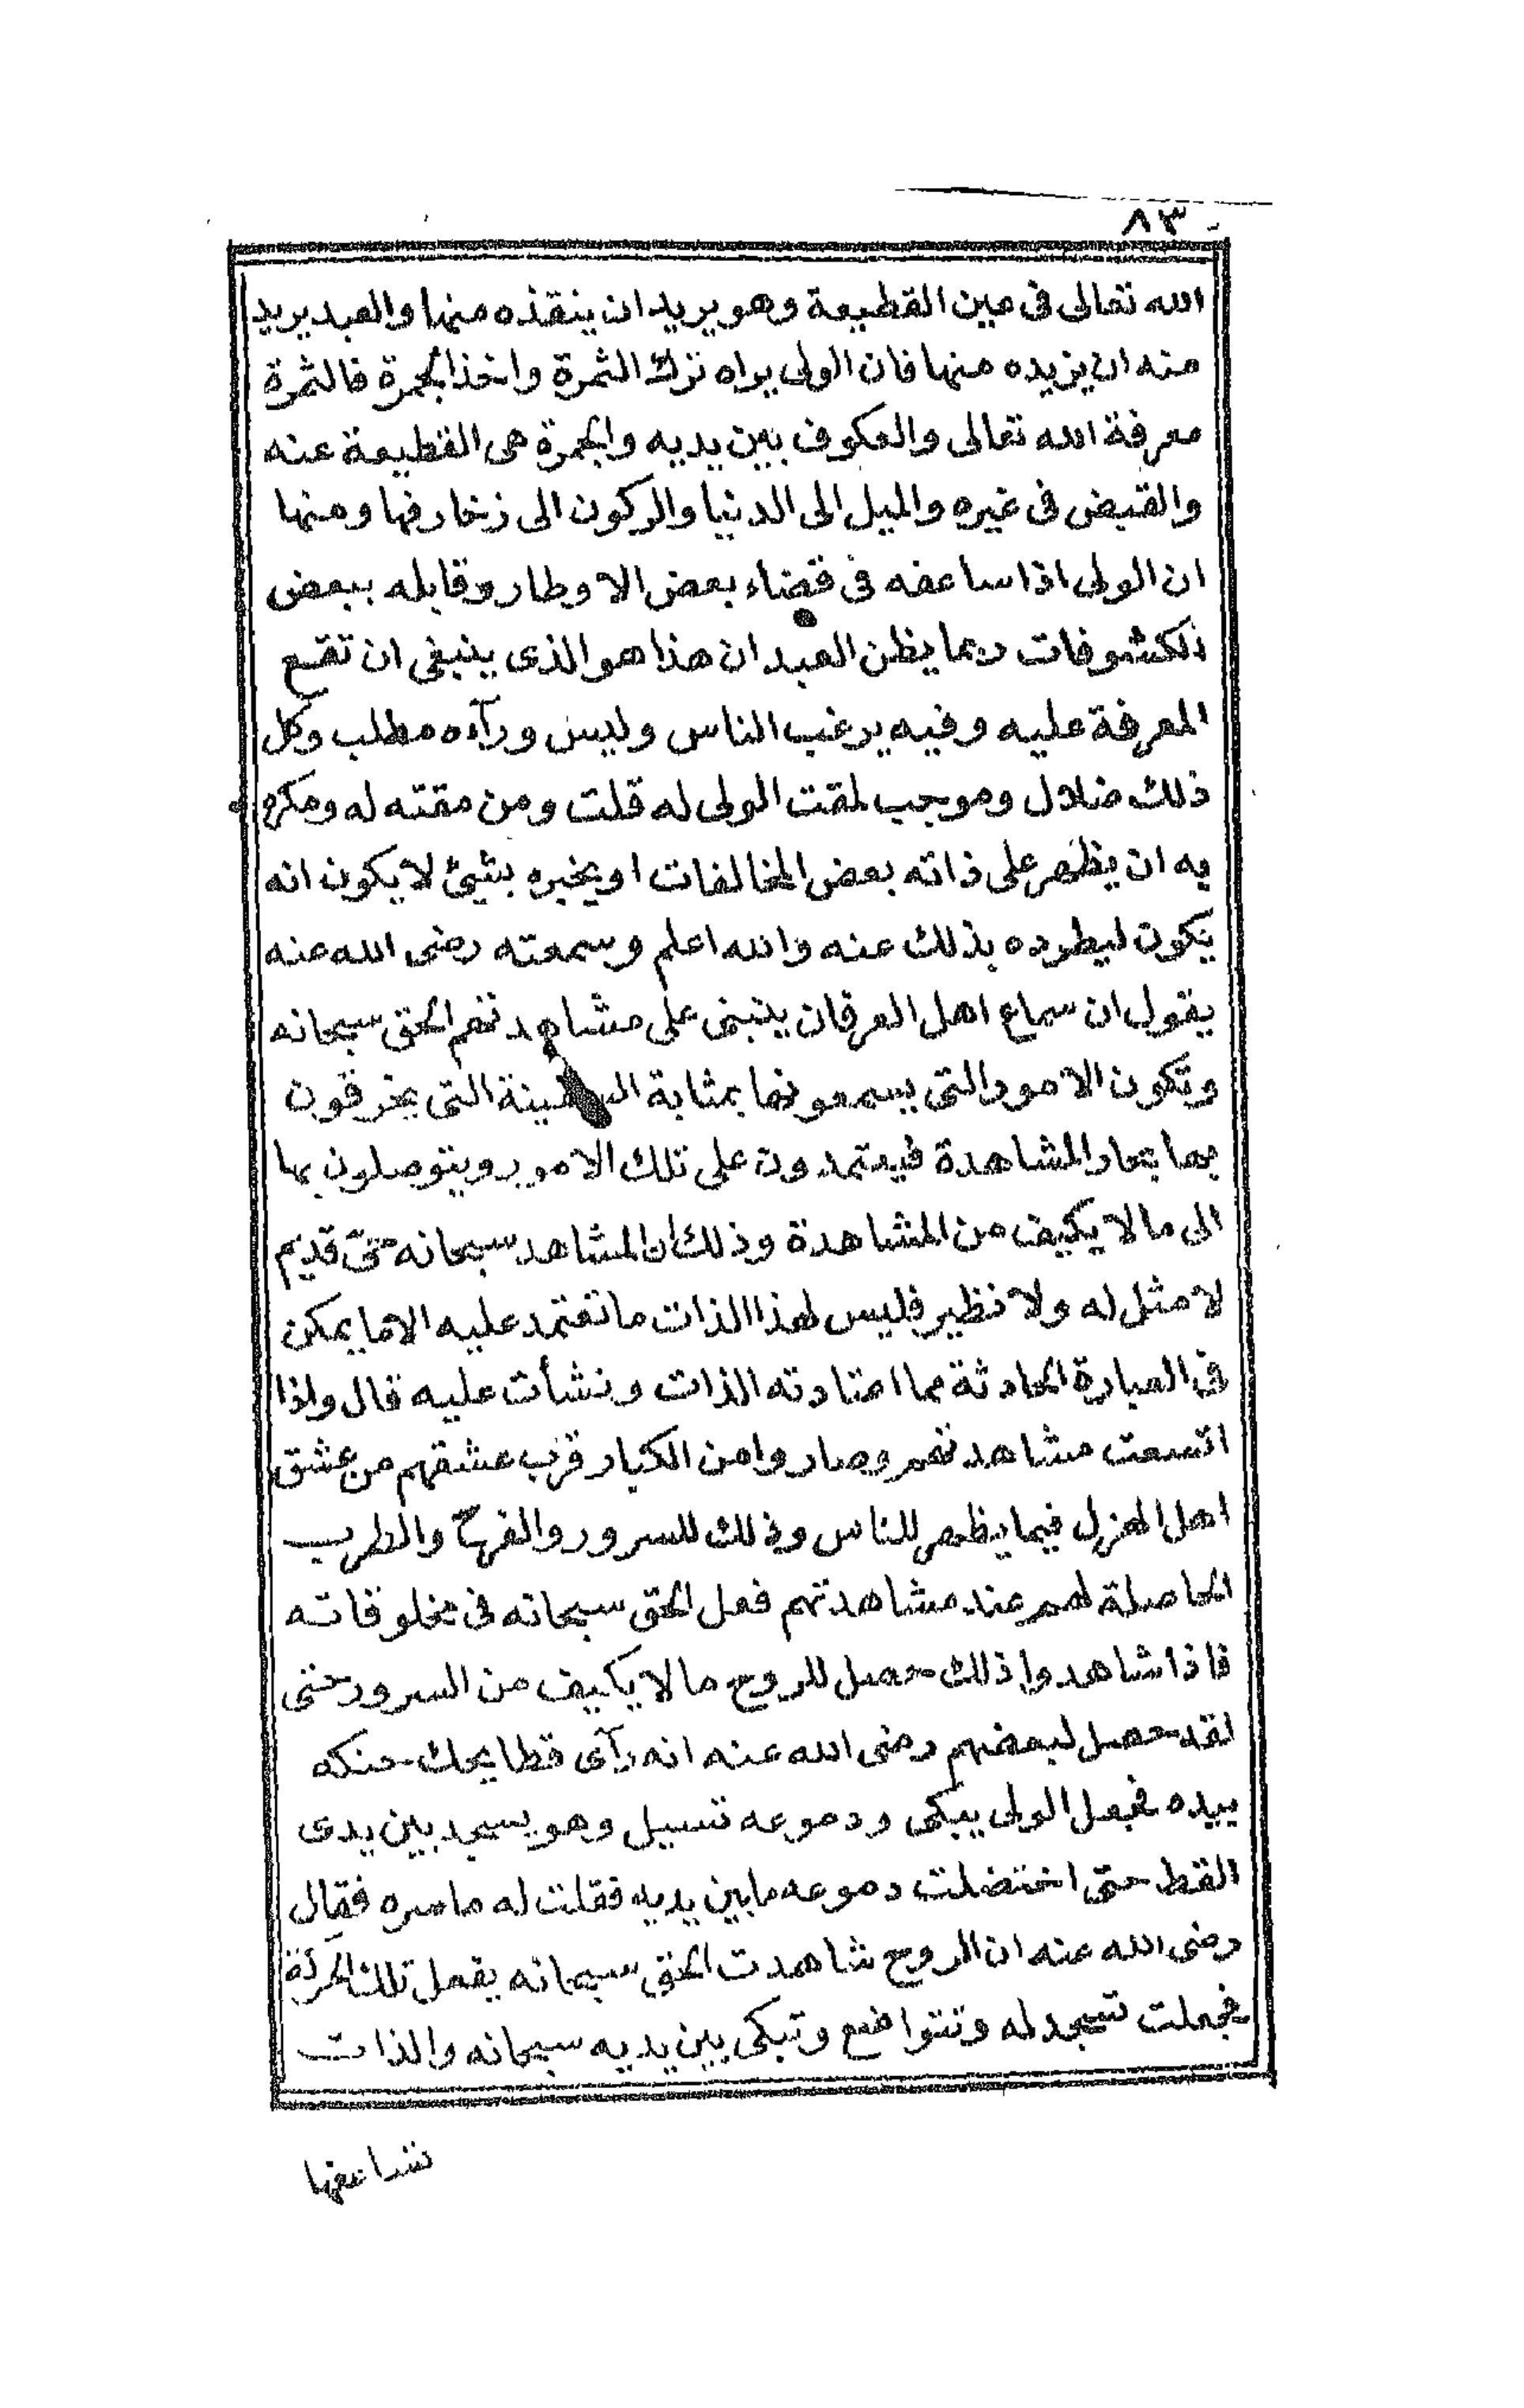 ٨٣
الله تعالى فى عين القطيعة وهو يريد ان ينقذه منها والعبد يريد
منه ان يزيده منها فان الولى يراه ترك الثمرة واخذ الجمرة فالثمرة
معرفة الله تعالى والعكوف بين يديه والجمرة هى القطيعة عنه
والقبض فى غيره والميل الى الدنيا والركون الى زخارفها ومنها
ان الولى اذا ساعفه فى قضاء بعض الاوطار وقابله ببعض
الكشوفات ربما يظن العبد ان هذا هو الذى ينبغى ان تقع
المعرفة عليه وفيه يرغب الناس وليس ورآءه مطلب وكل
ذلك ضلال وموجب لمقت الولى له قلت ومن مقته له ومكره
به ان يظهر على ذاته بعض المخالفات او يخبره بشئ لا يكون انه
يكون ليطرده بذلك عنه والله اعلم وسمعته رضى الله عنه
يقول ان سماع اهل العرفان ينبنى على مشاهدتهم الحق سبحانه
وتكون الامور التى يسمعونها بمثابة السفينة التى يخرقون
بها بحار المشاهدة فيعتمدون على تلك الامور ويتوصلون بها
الى ما لا يكيف من المشاهدة وذلك ان المشاهد سبحانه حق قديم
لا مثل له ولا نظير فليس لهذا الذات ما تعتمد عليه الا ما يمكن
فى العبارة الحادثة مما اعتادته الذات ونشأت عليه قال واذا
اتسعت مشاهدتهم وصاروا من الكبار قرب عشقهم من عشق
اهل الهزل فيما يظهر للناس وذلك للسرور والفرح والطرب
الحاصلة لهم عند مشاهدتهم فعل الحق سبحانه فى مخلوقاته
فاذا شاهدوا ذلك حصل للروح ما لا يكيف من السرور حتى
لقد حصل لبعضهم رضى الله عنه انه رآى قطا يحك حنكه
بيده فجعل الولى يبكى ودموعه تسيل وهو يسجد بين يدى
القط حتى اختضلت دموعه ما بين يديه فقلت له ما سره فقال
رضى الله عنه ان الروح شاهدت الحق سبحانه يفعل تلك الحركة
فجعلت تسجد له وتتواضع وتبكى بين يديه سبحانه والذات
تساعفها